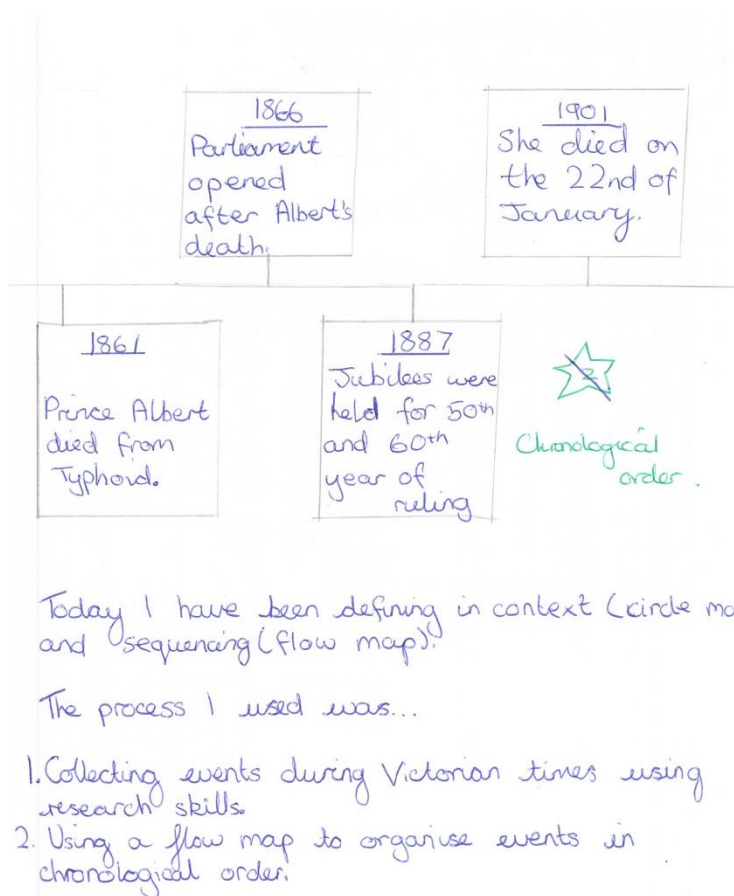 1866
Parliament
opened
after Albert's
death.
1901
She died on
the 22nd of
January.
1861
Prince Albert
died from
Typhoid.
1887
Jubilees were
held for 50th
and 60th
year of
ruling
2
Chronological
order.
Today I have been defining in context (circle
and sequencing (flow map).
The process I used was...
1. Collecting events during Victorian times using
research skills.
2. Using a flow map to organise events in
chronological order.